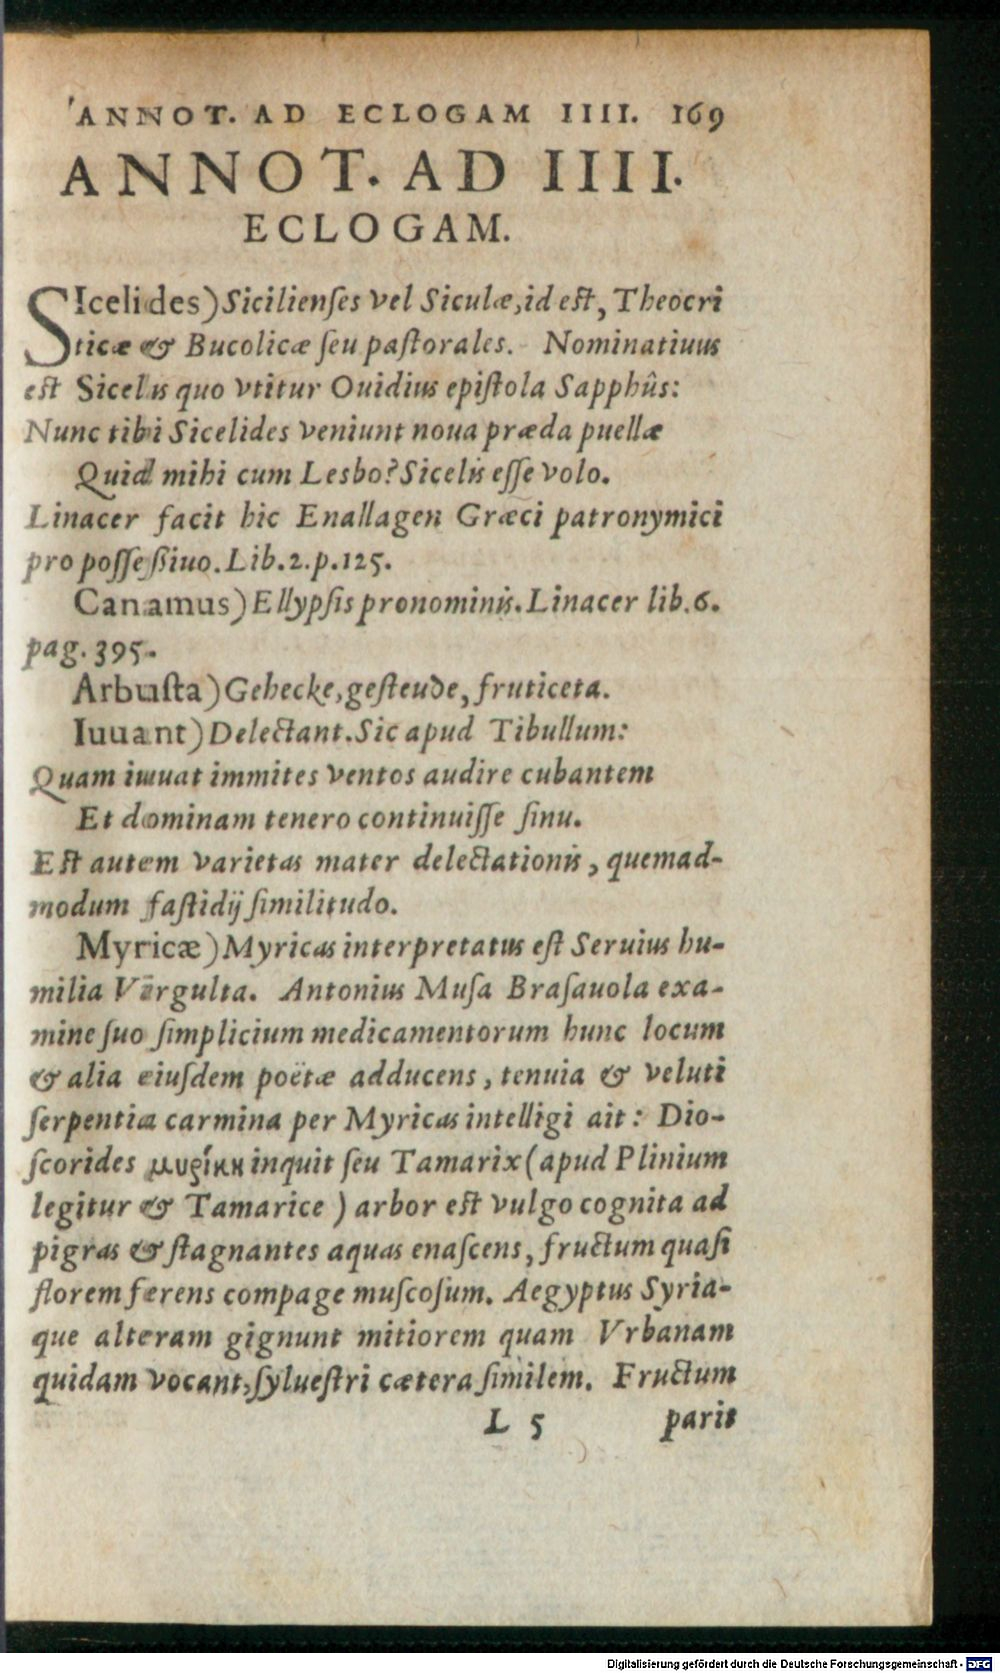 ANNOT. AD ECLOGAM IIII. 169
ANNOT. AD IIII.
ECLOGAM.
SIcelides) Sicilienſes vel Siculæ, id eſt, Theocri
ticæ & Bucolicæ ſeu paſtorales. Nominatiuus
est Sicelis quo vtitur Ouidius epiſtola Sapphûs:
Nunc tibi Sicelides veniunt noua præda puellæ
Quid mihi cum Lesbo? Sicelis eſſe volo.
Linacer facit hic Enallagen Græci patronymici
pro poſſeßiuo. Lib. 2. p. 125.
Canamus) Ellypſis pronominis. Linacer lib. 6.
pag. 395.
Arbuſta) Gehecke, geſteude, fruticeta.
Iuuant) Delectant. Sic apud Tibullum:
Quam iuuat immites ventos audire cubantem
Et dominam tenero continuiſſe ſinu.
Eſt autem varietas mater delectationis, quemad-
modum faſtidij ſimilitudo.
Myricæ) Myricas interpretatus eſt Seruius hu-
milia Virgulta. Antonius Muſa Braſauola exa-
mine ſuo ſimplicium medicamentorum hunc locum
& alia eiuſdem poëtæ adducens, tenuia & veluti
ſerpentia carmina per Myricas intelligi ait: Dio-
ſcorides μυρίκη inquit ſeu Tamarix (apud Plinium
legitur & Tamarice) arbor eſt vulgo cognita ad
pigras & ſtagnantes aquas enaſcens, fructum quaſi
florem ferens compage muſcoſum. Aegyptus Syria-
que alteram gignunt mitiorem quam Vrbanam
quidam vocant, ſylueſtri cætera ſimilem. Fructum
L 5 parit
Digitalisierung gefördert durch die Deutsche Forschungsgemeinschaft - DFG